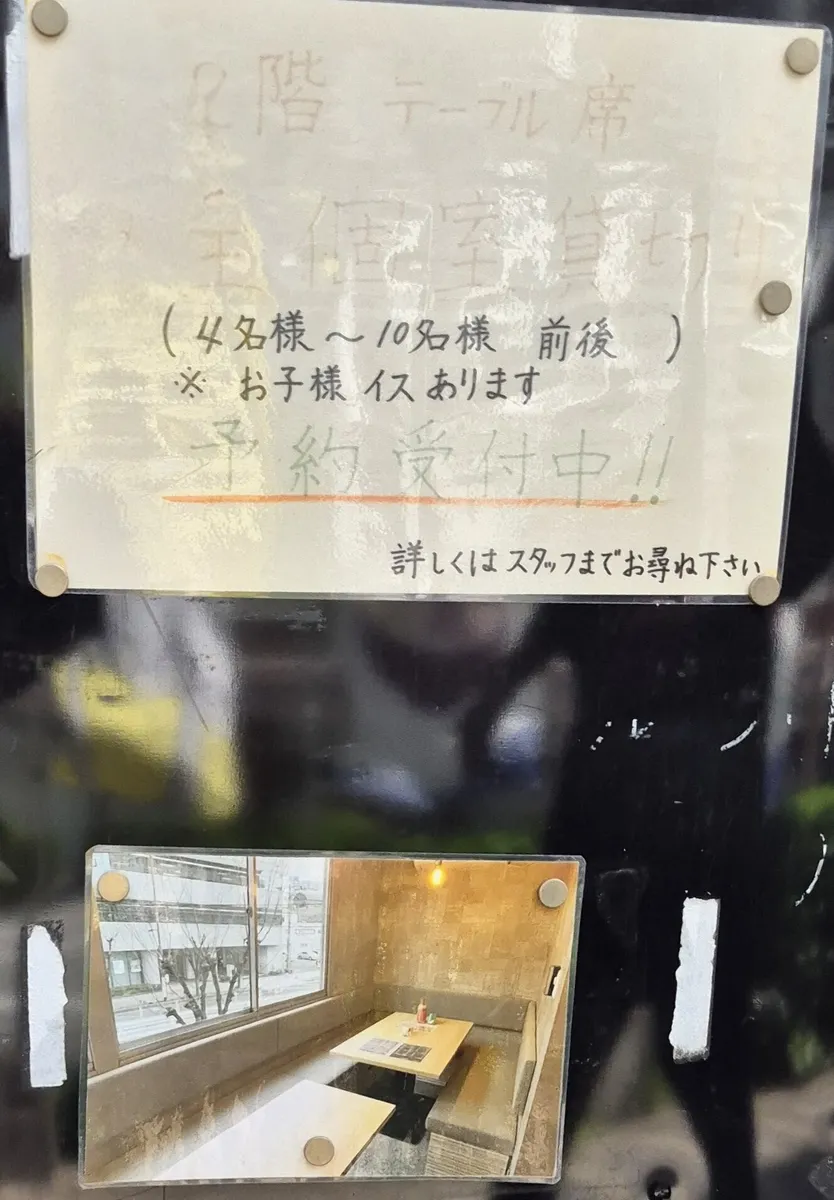 2階 テーブル席
全個室貸切り
(4名様〜10名様 前後 )
※ お子様イスあります
予約受付中!!
詳しくはスタッフまでお尋ね下さい